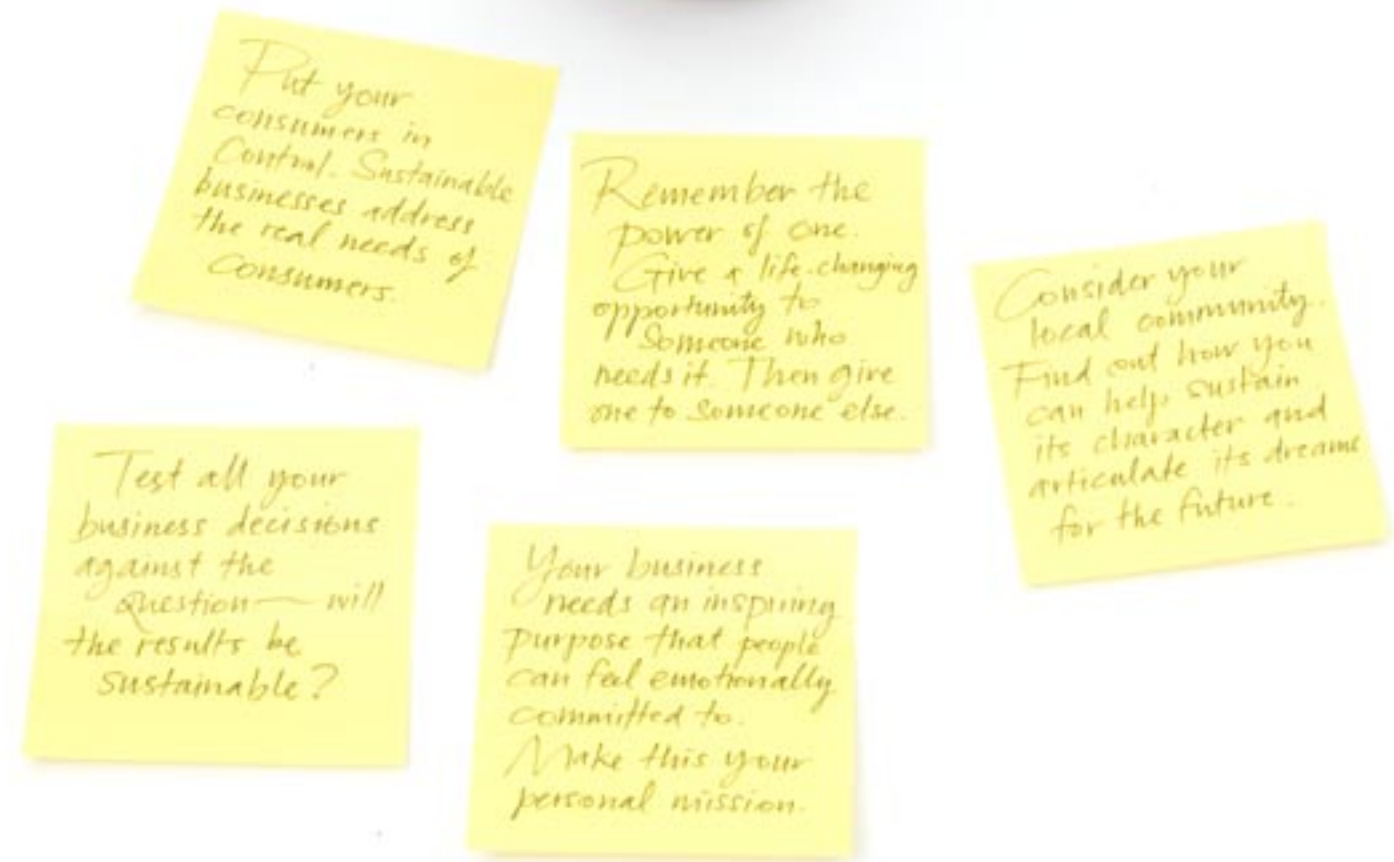 Put your
consumers in
Control. Sustainable
businesses address
the real needs of
consumers.
Remember the
power of one.
Give a life-changing
opportunity to
Someone who
needs it. Then give
one to someone else.
Consider your
local community.
Find out how you
can help sustain
its character and
articulate its dreams
for the future.
Test all your
business decisions
against the
question — will
the results be
sustainable?
Your business
needs an inspiring
purpose that people
can feel emotionally
committed to.
Make this your
personal mission.